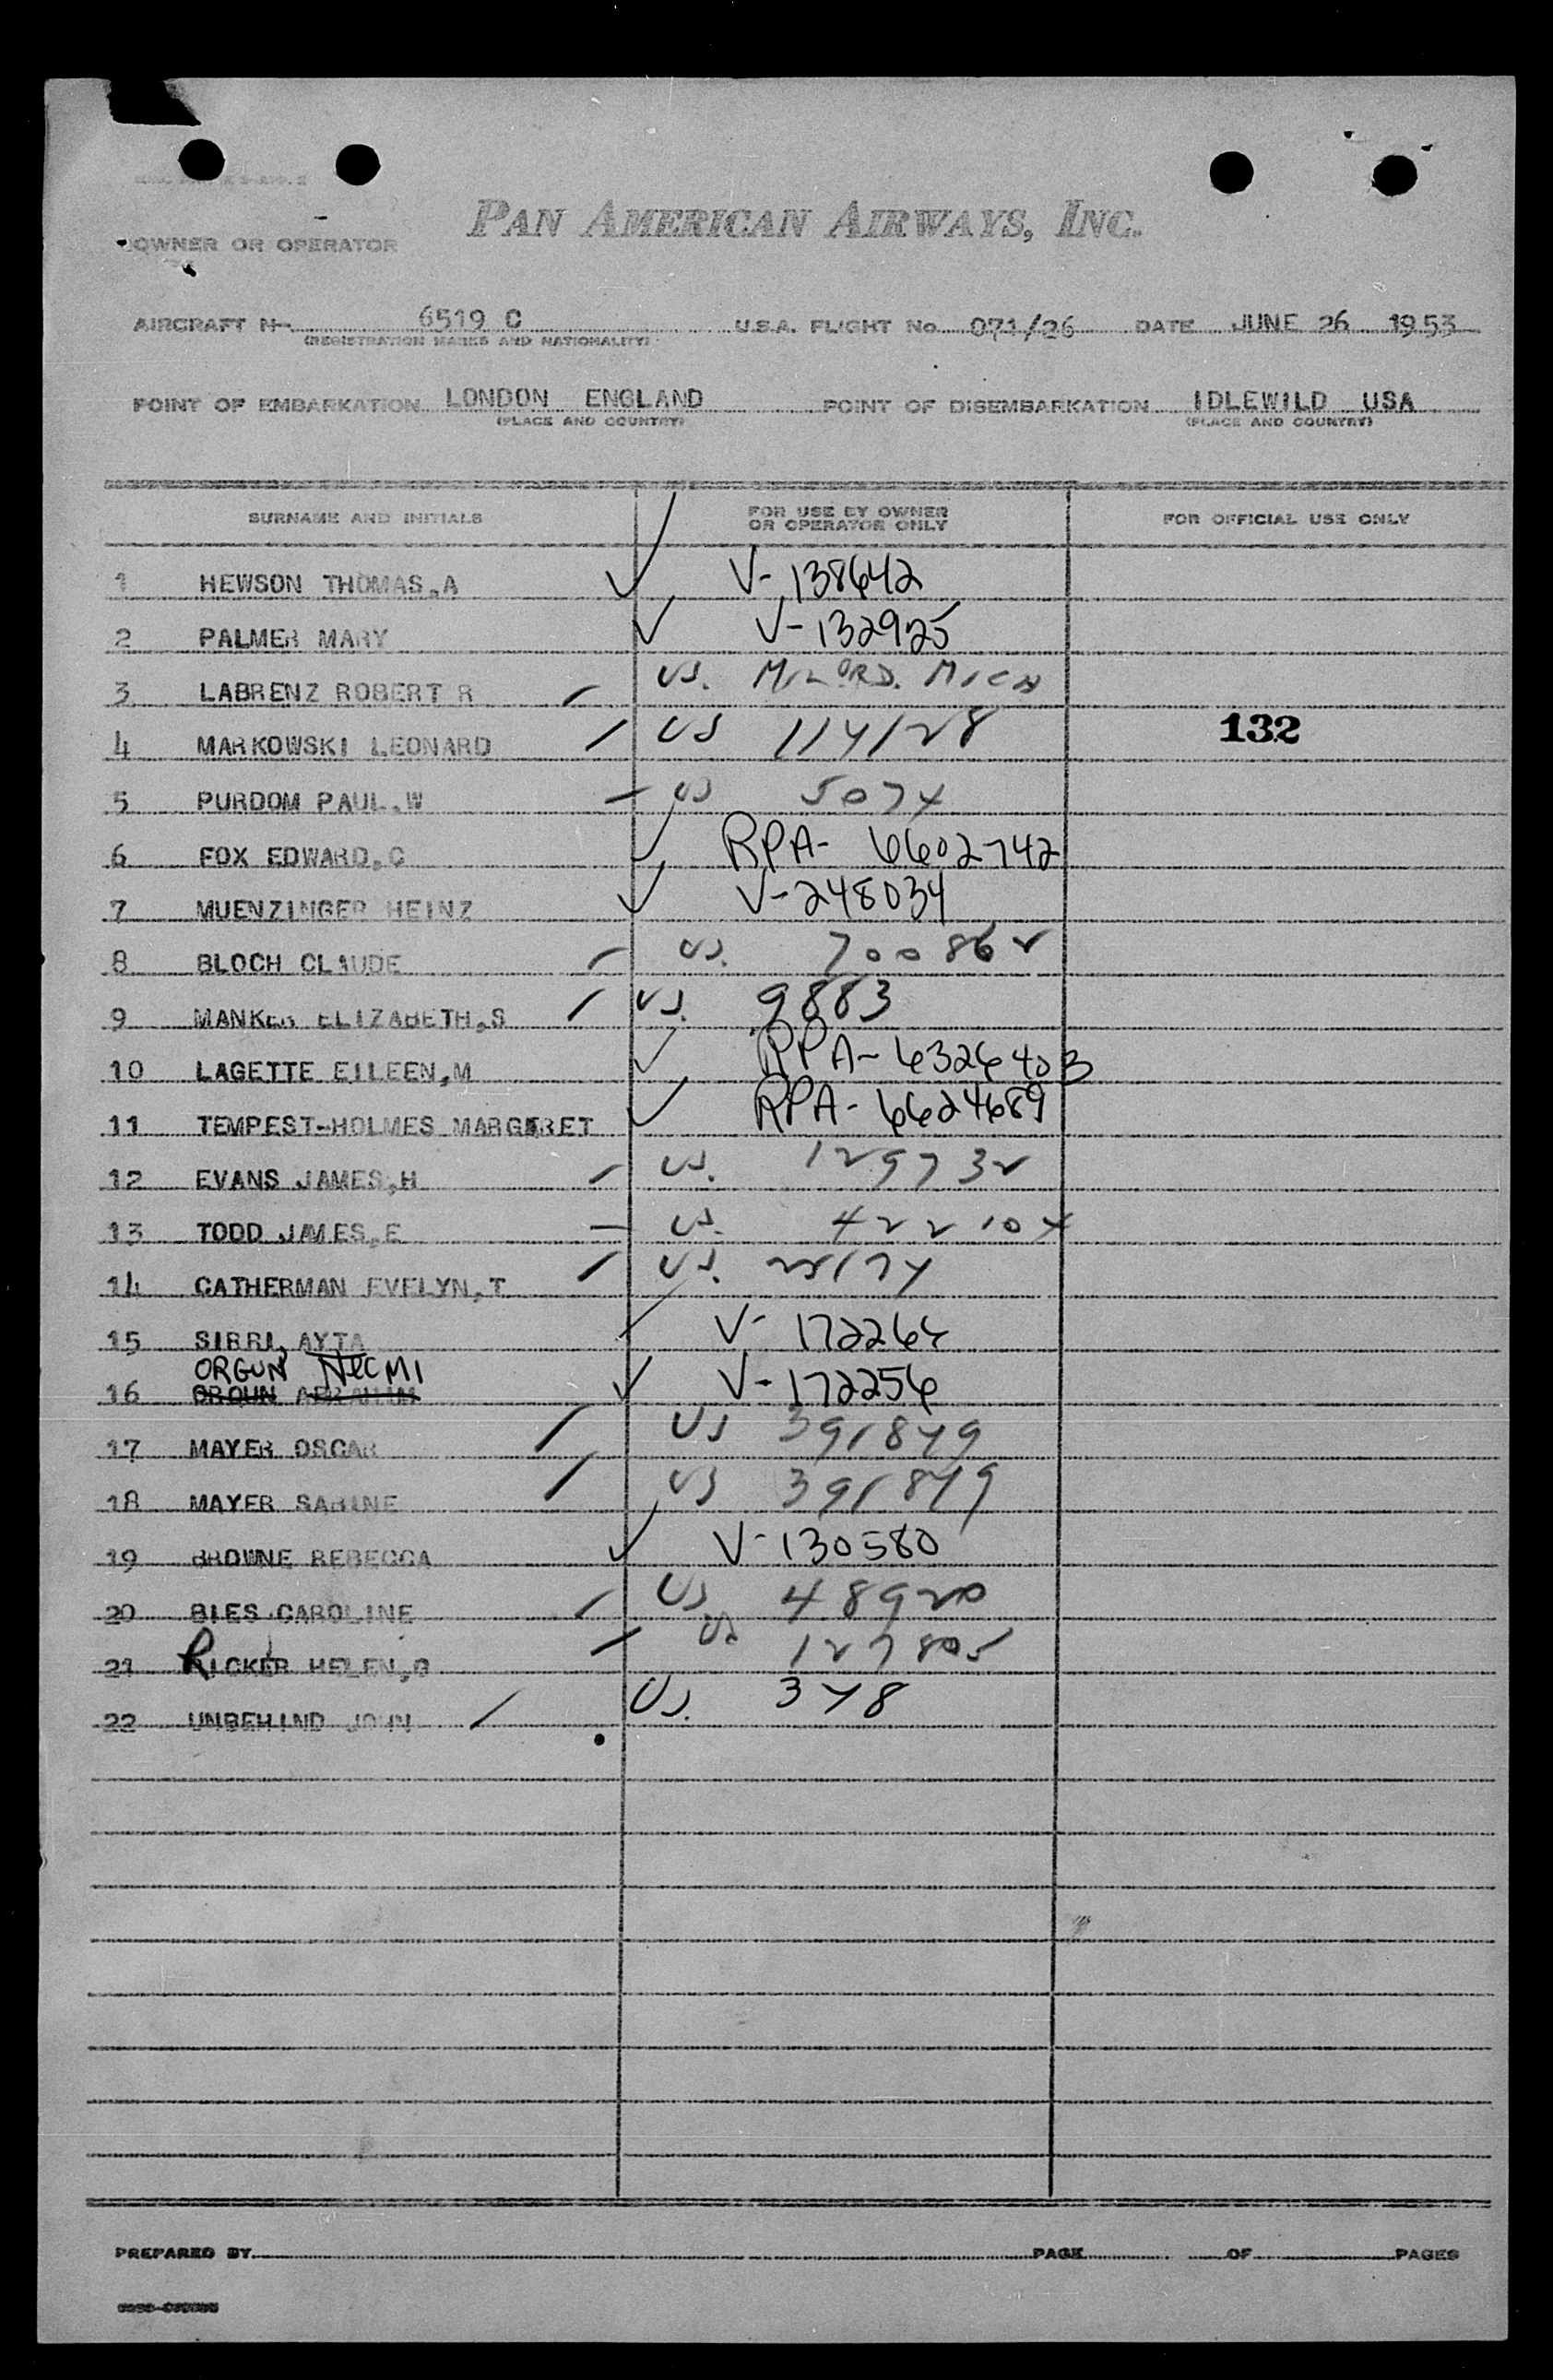 PAN AMERICAN AIRWAYS, INC.
OWNER OR OPERATOR
AIRCRAFT No. 6519 C U.S.A. FLIGHT No. 071/26 DATE JUNE 26 1953
(REGISTRATION MARKS AND NATIONALITY)
POINT OF EMBARKATION LONDON ENGLAND POINT OF DISEMBARKATION IDLEWILD USA
(PLACE AND COUNTRY) (PLACE AND COUNTRY)
SURNAME AND INITIALS FOR USE BY OWNER OR OPERATOR ONLY FOR OFFICIAL USE ONLY
1 HEWSON THOMAS,A ✓ V-138642
2 PALMER MARY ✓ V-132925
3 LABRENZ ROBERT R / US. MIL ORD. MICH
4 MARKOWSKI LEONARD / US 114128 132
5 PURDOM PAUL,W — US 5074
6 FOX EDWARD,C ✓ RPA- 6602742
7 MUENZINGER HEINZ ✓ V-248034
8 BLOCH CLAUDE / US. 700862
9 MANKER ELIZABETH,S / US. 9883
10 LAGETTE EILEEN,M ✓ RPA-6326403
11 TEMPEST-HOLMES MARGARET ✓ RPA-6624689
12 EVANS JAMES,H / US. 129732
13 TODD JAMES,E — US. 422104
14 CATHERMAN EVELYN,T / US. 25174
15 SIRRI, AYTA / V- 172264
ORGUN NECMI
16 ORGUN ABRAHIM ✓ V-172256
17 MAYER OSCAR / US 391849
18 MAYER SABINE / US 391849
19 BROWNE REBECCA ✓ V-130580
20 BIES CAROLINE / US 48920
21 RICKER HELEN,G / US 127805
22 UNBEHIND JOHN / US. 348
PREPARED BY PAGE OF PAGES